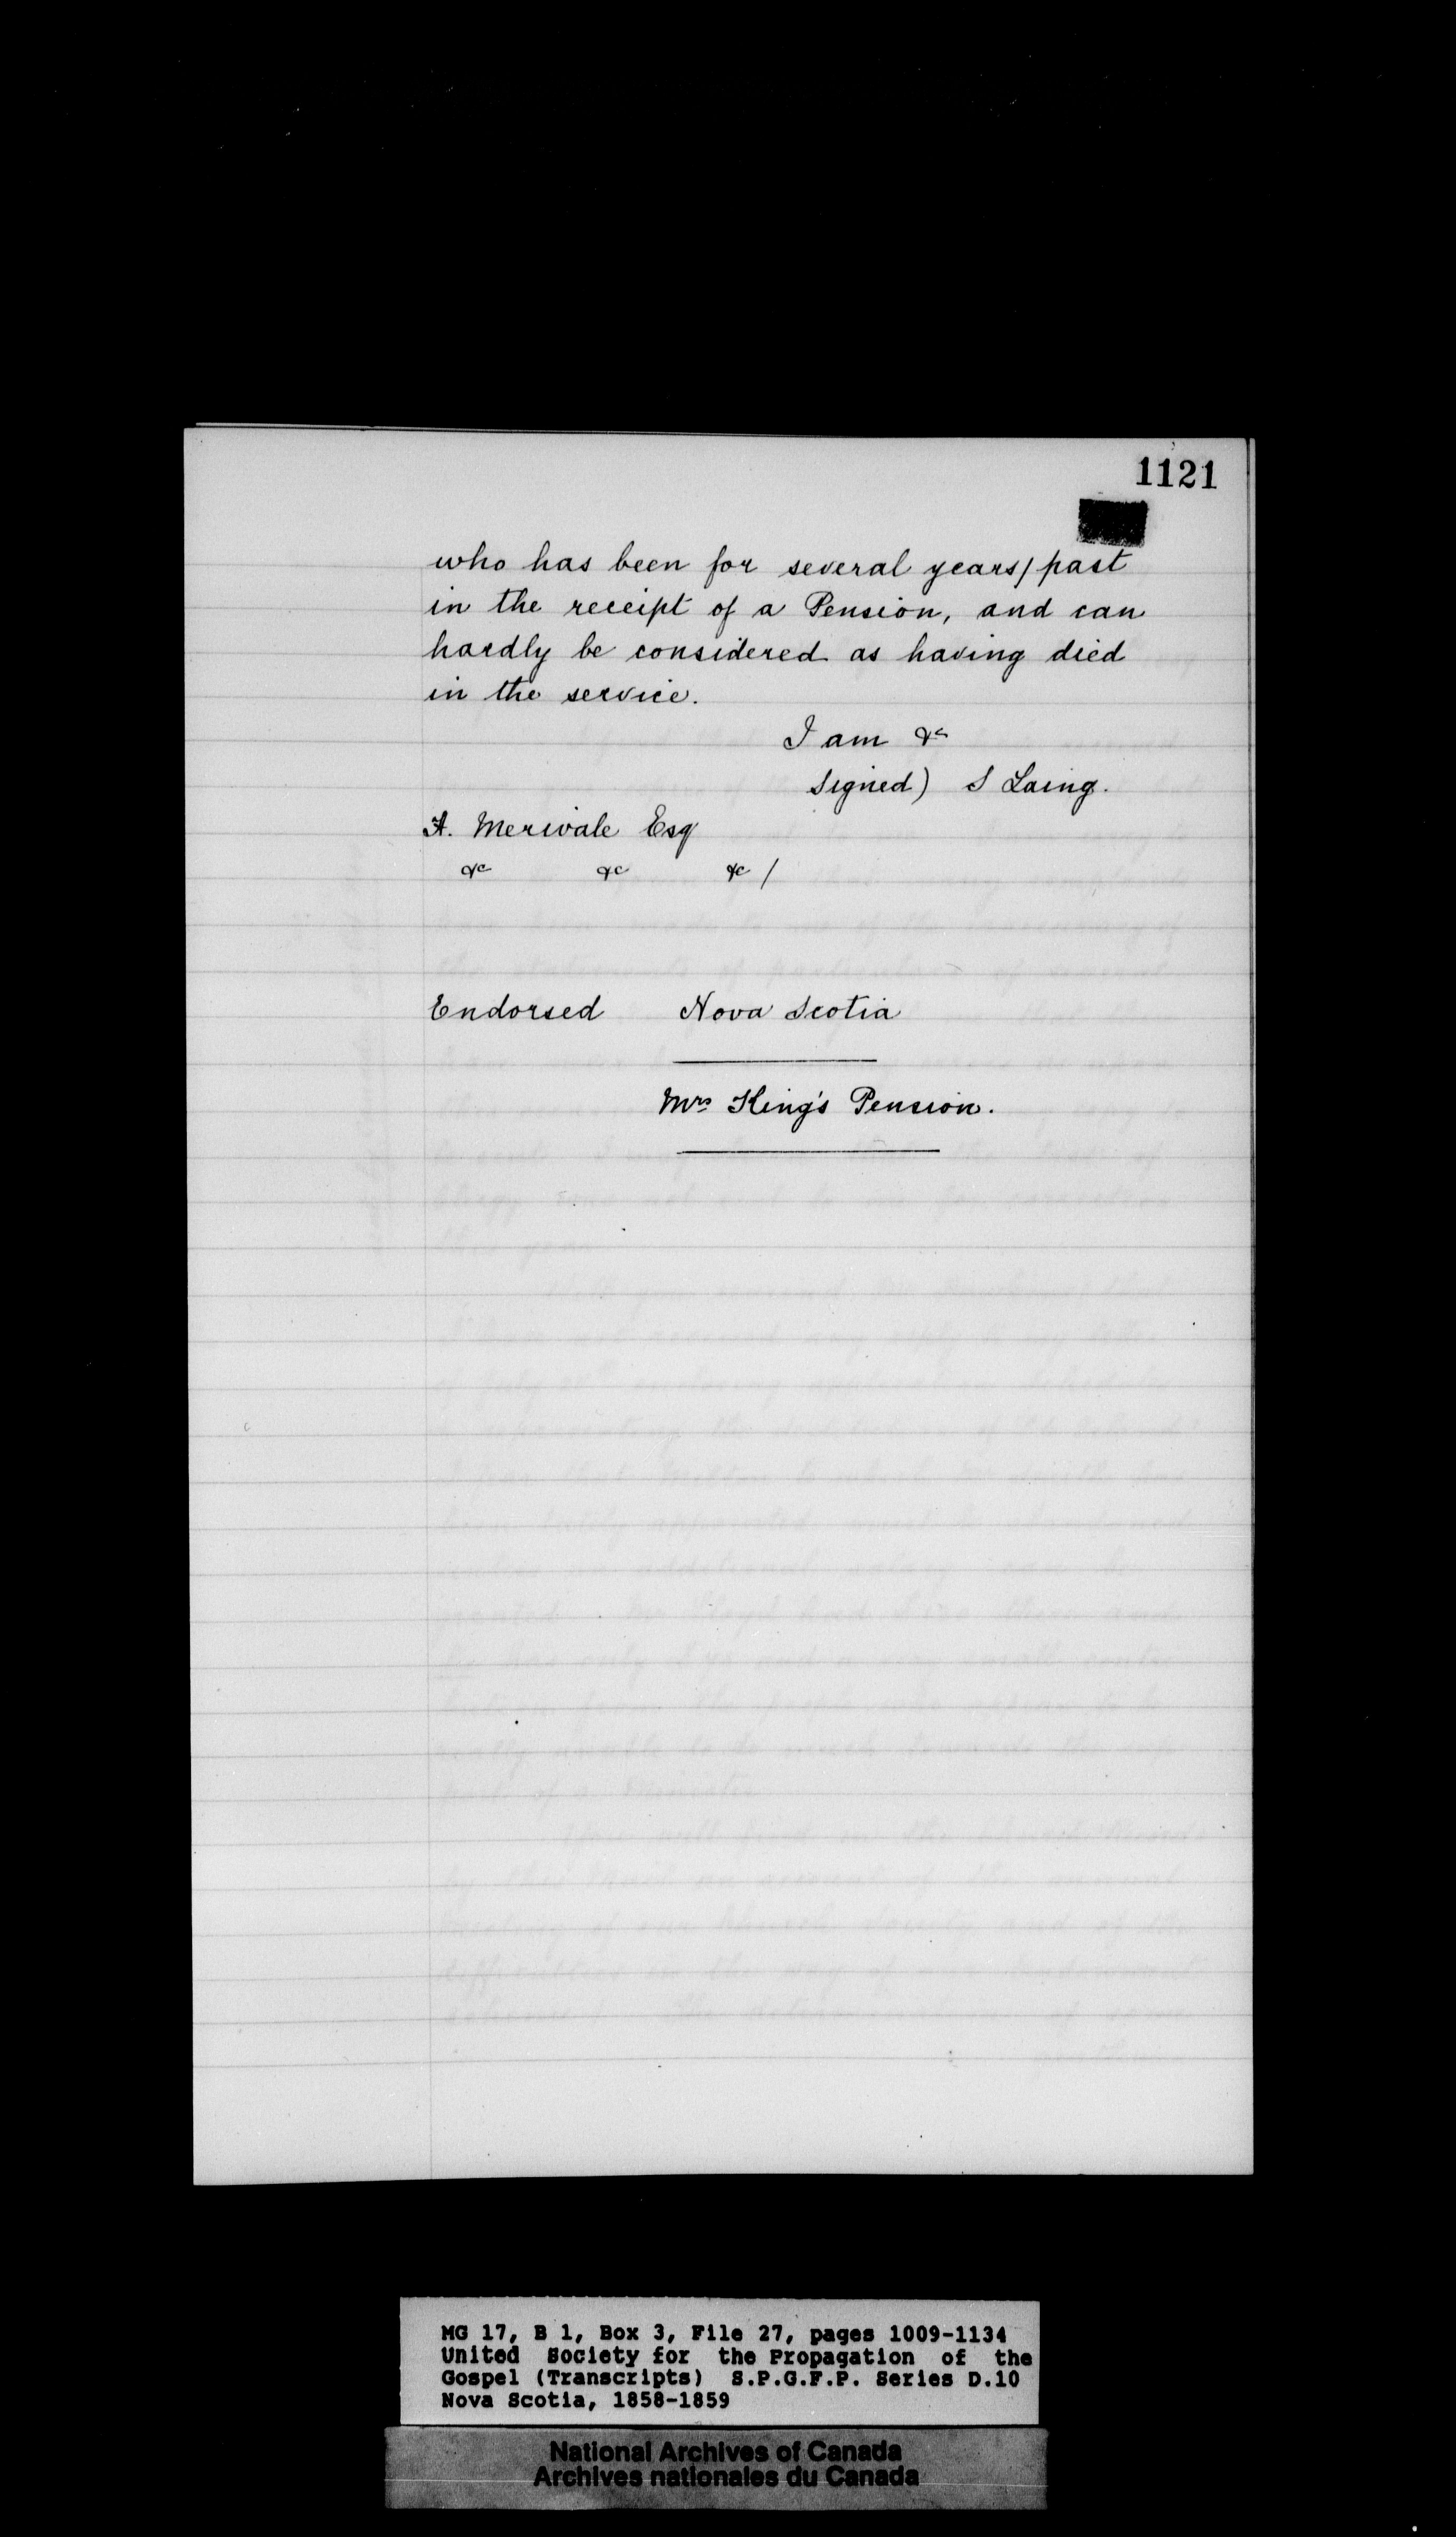 1121
who has been for several years/past
in the receipt of a Pension, and can
hardly be considered as having died
in the service.
I am &c
Signed) S Laing.
H. Merivale Esq
&c &c &c /
Endorsed Nova Scotia
Mrs King's Pension.
MG 17, B 1, Box 3, File 27, pages 1009-1134
United Society for the Propagation of the
Gospel (Transcripts) S.P.G.F.P. Series D.10
Nova Scotia, 1858-1859
National Archives of Canada
Archives nationales du Canada